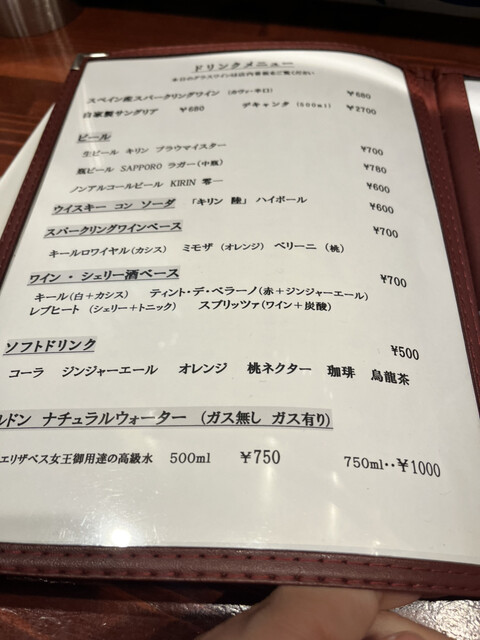 ドリンクメニュー
本日のグラスワインは店内看板をご覧ください
スペイン産スパークリングワイン (カヴァ・辛口) ¥680
自家製サングリア ¥680 デキャンタ (500ml) ¥2700
ビール
生ビール キリン ブラウマイスター ¥700
瓶ビール SAPPORO ラガー(中瓶) ¥780
ノンアルコールビール KIRIN 零一 ¥600
ウイスキー コン ソーダ 「キリン 陸」 ハイボール ¥600
スパークリングワインベース ¥700
キールロワイヤル(カシス) ミモザ (オレンジ) ベリーニ (桃)
ワイン・シェリー酒ベース ¥700
キール(白+カシス) ティント・デ・ベラーノ(赤+ジンジャーエール)
レブヒート (シェリー+トニック) スプリッツァ(ワイン+炭酸)
ソフトドリンク ¥500
コーラ ジンジャーエール オレンジ 桃ネクター 珈琲 烏龍茶
ルドン ナチュラルウォーター (ガス無し ガス有り)
エリザベス女王御用達の高級水 500ml ¥750 750ml・・¥1000